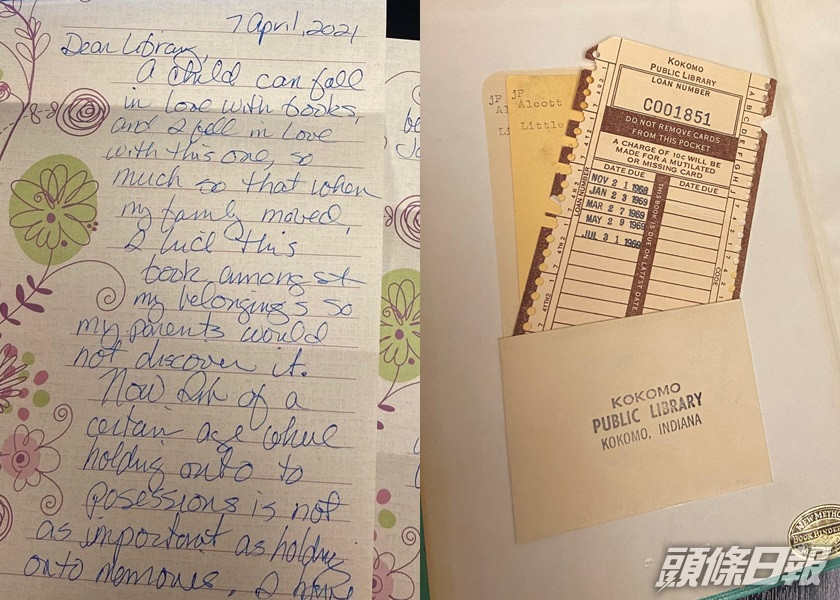 7 April, 2021
Dear Library,
A child can fall
in love with books,
and I fell in love
with this one, so
much so that when
my family moved,
I hid this
book amongst
my belongings so
my parents would
not discover it.
Now I'm of a
certain age where
holding onto to
posessions is not
as important as holding
onto memories. I have
KOKOMO
PUBLIC LIBRARY
LOAN NUMBER
C001851
DO NOT REMOVE CARDS
FROM THIS POCKET
A CHARGE OF 10c WILL BE
MADE FOR A MUTILATED
OR MISSING CARD
DATE DUE
DATE DUE
NOV 21 1968
JAN 23 1969
MAR 27 1969
MAY 29 1969
JUL 31 1969
LOAN NUMBER
THIS BOOK IS DUE ON LATEST DATE
CODE
JF
JF
Alcott
Al
Little
Li
KOKOMO
PUBLIC LIBRARY
KOKOMO, INDIANA
NEW METHOD
BOOK BINDER
頭條日報